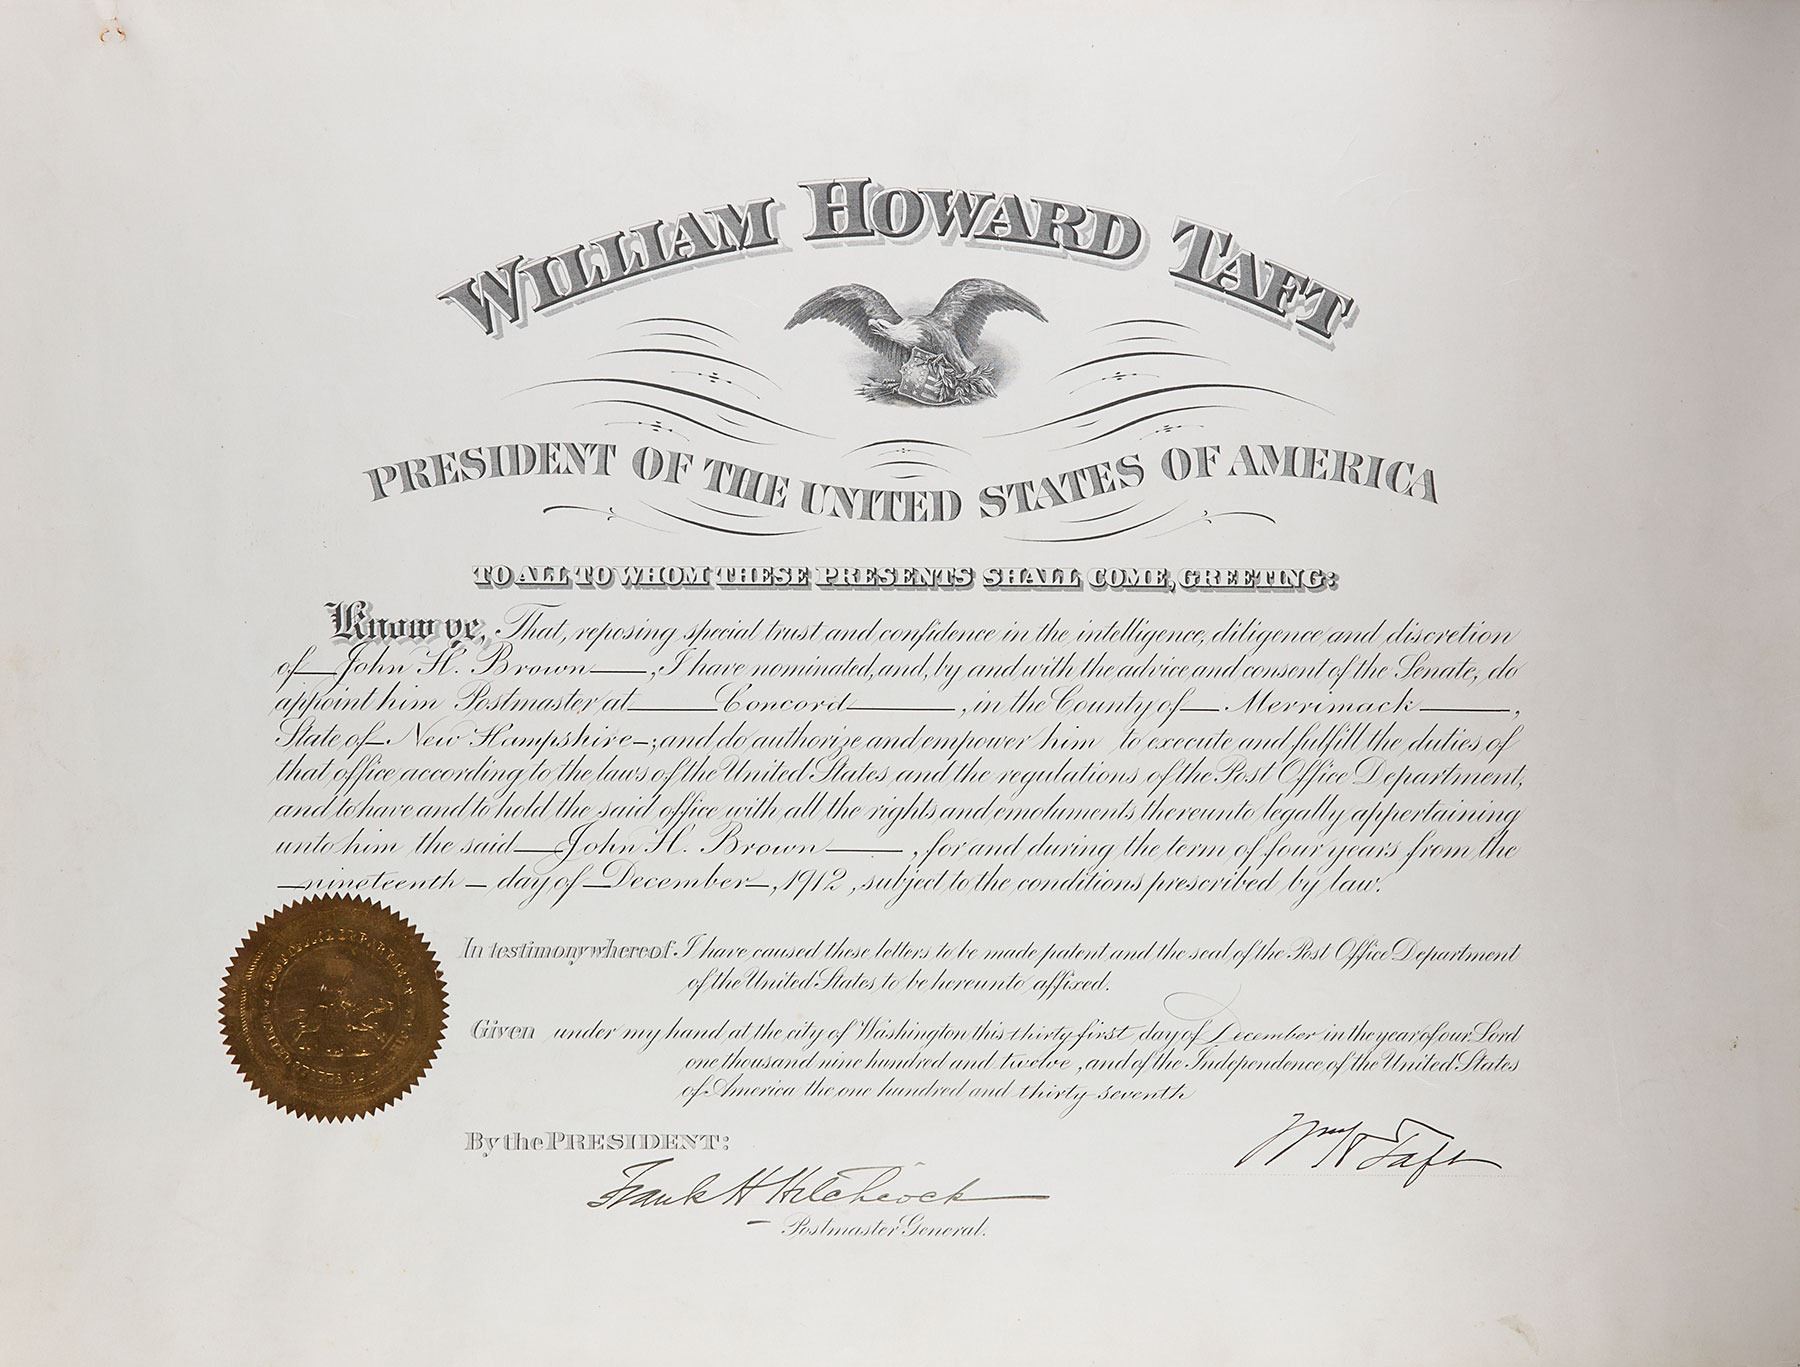 WILLIAM HOWARD TAFT
PRESIDENT OF THE UNITED STATES OF AMERICA
TO ALL TO WHOM THESE PRESENTS SHALL COME, GREETING:
Know ye, That, reposing special trust and confidence in the intelligence, diligence and discretion
of John H. Brown, I have nominated, and, by and with the advice and consent of the Senate, do
appoint him Postmaster at Concord, in the County of Merrimack,
State of New Hampshire; and do authorize and empower him to execute and fulfill the duties of
that office according to the laws of the United States and the regulations of the Post Office Department,
and to have and to hold the said office with all the rights and emoluments thereunto legally appertaining
unto him the said John H. Brown, for and during the term of four years from the
nineteenth day of December, 1912, subject to the conditions prescribed by law.
In testimony whereof I have caused these letters to be made patent and the seal of the Post Office Department
of the United States to be hereunto affixed.
Given under my hand at the city of Washington this thirty-first day of December in the year of our Lord
one thousand nine hundred and twelve, and of the Independence of the United States
of America the one hundred and thirty-seventh
By the PRESIDENT:
Wm H Taft
Frank H Hitchcock
Postmaster General.